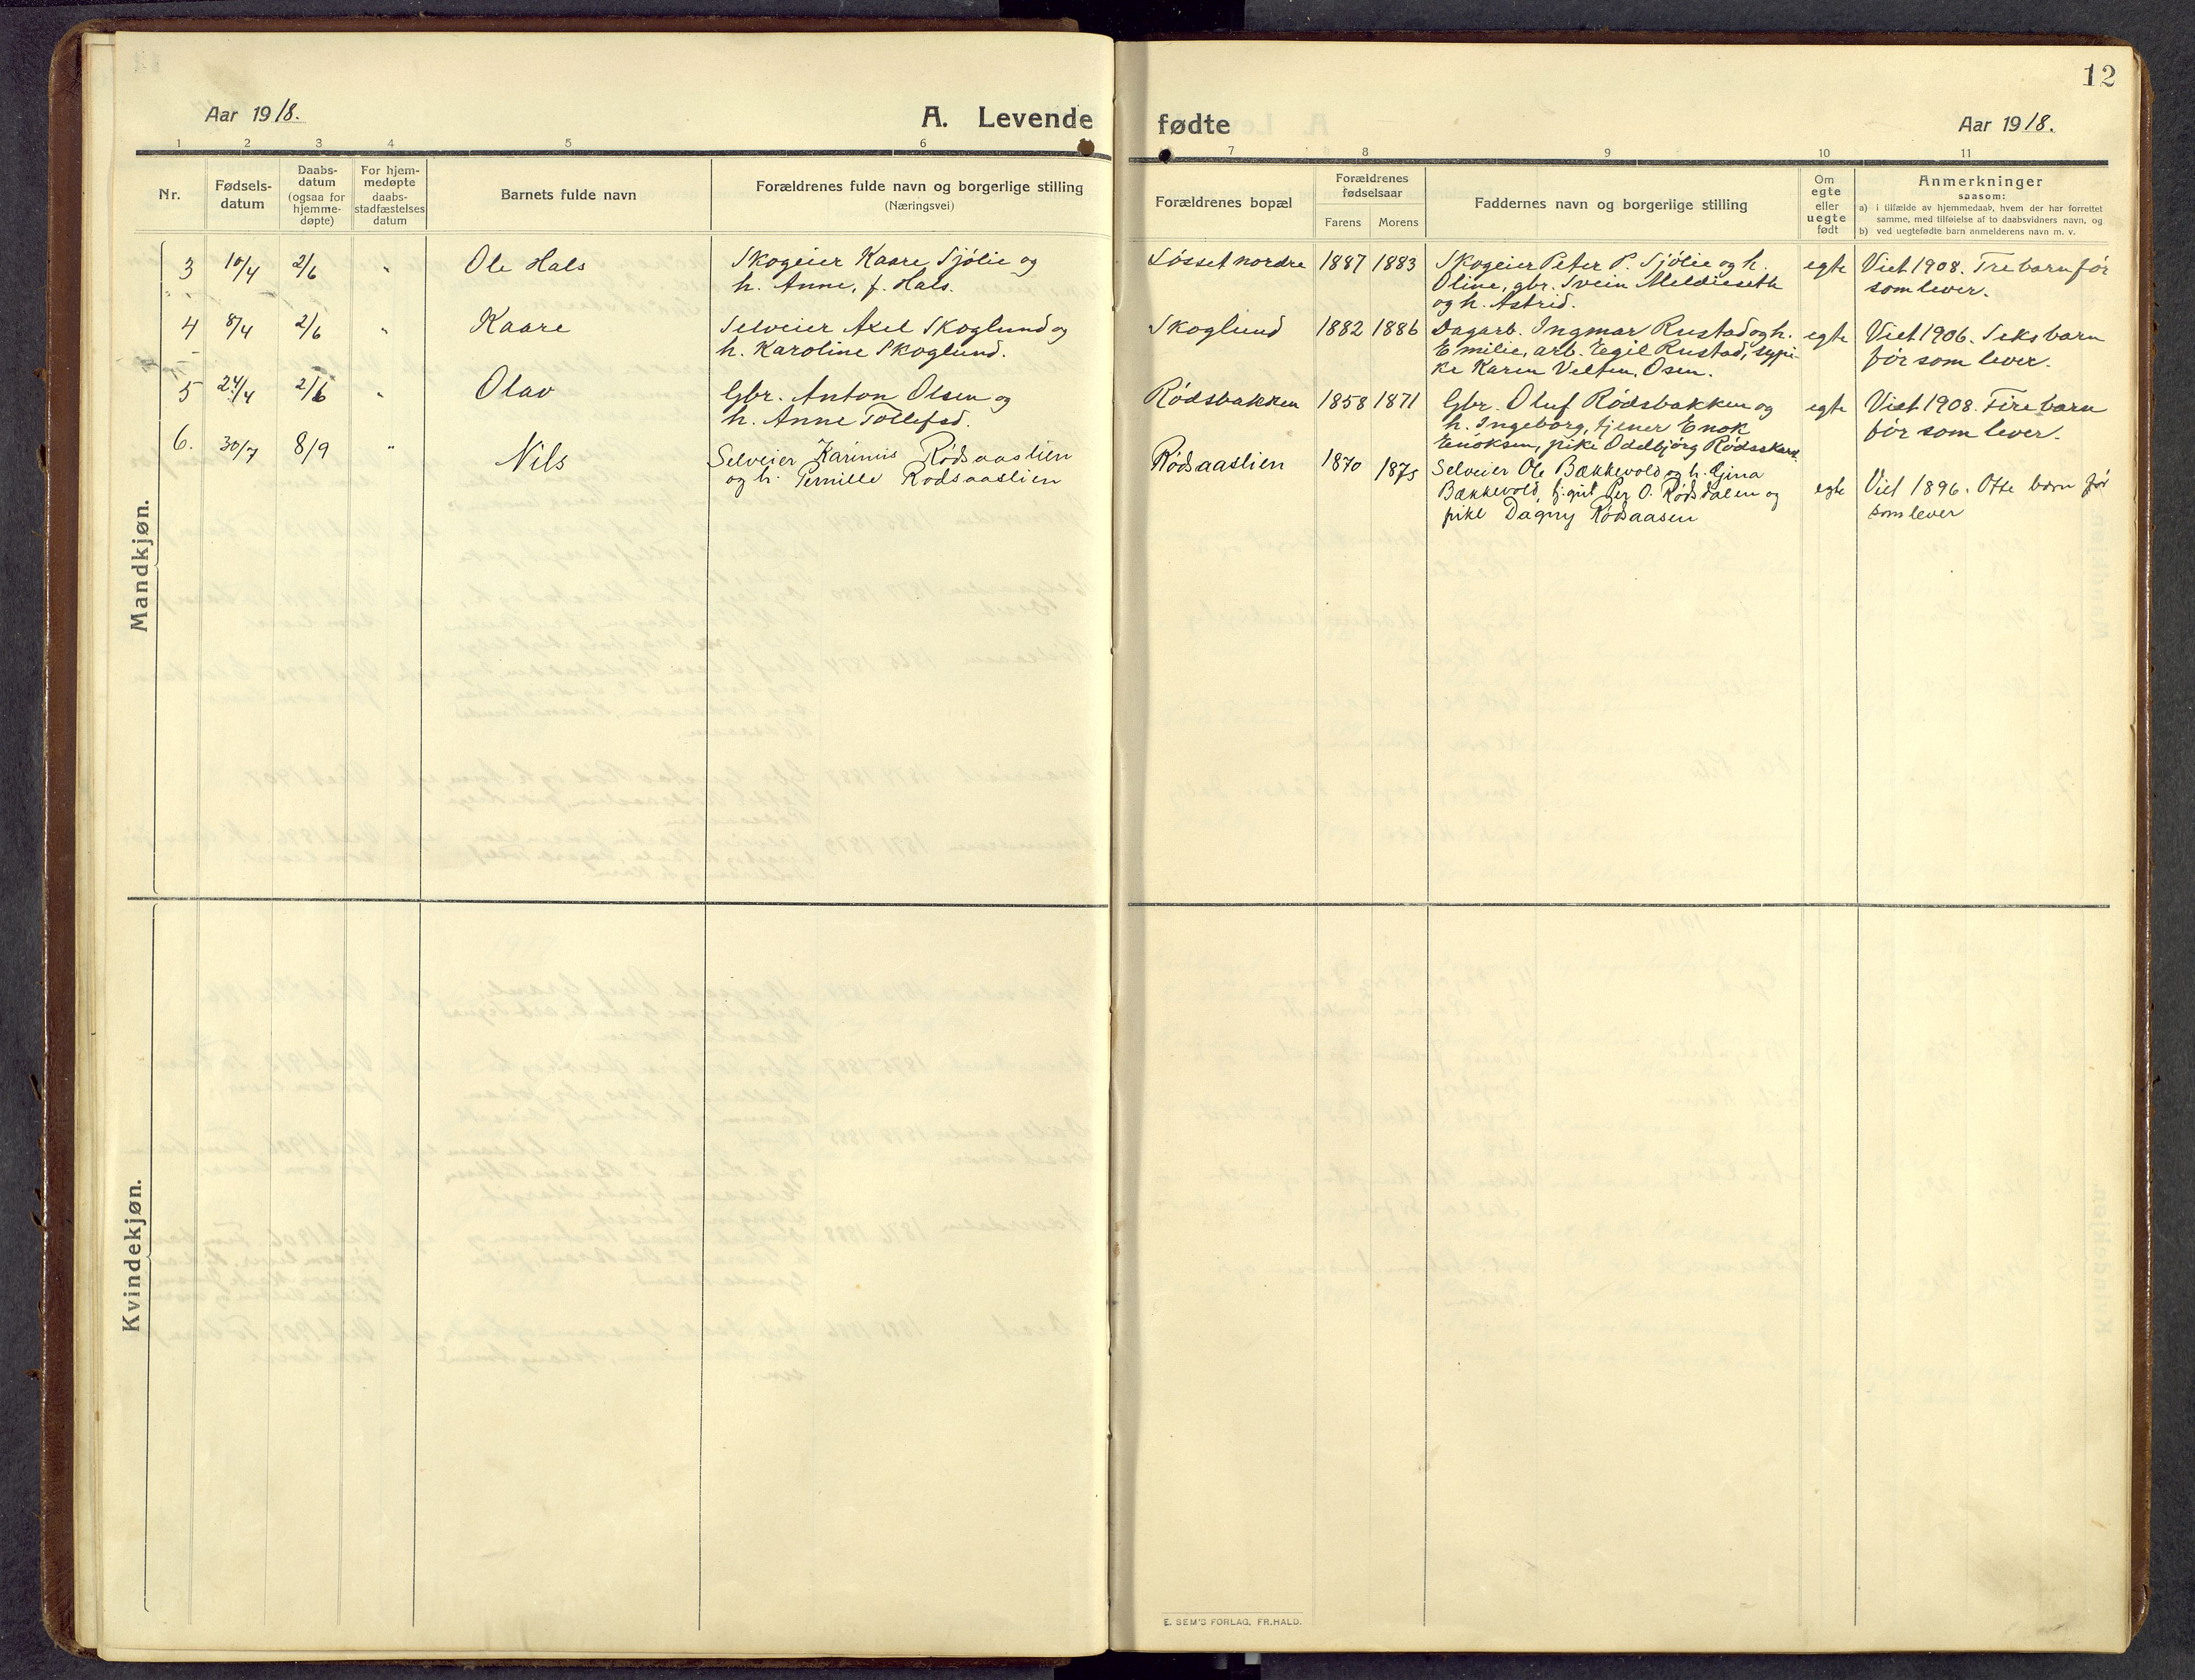 12
Aar 1918.
A. Levende fødte
Aar 1918.
1 2 3 4 5 6 7 8 9 10 11
Nr.
Fødsels-
datum
Daabs-
datum
(ogsaa for
hjemme-
døpte)
For hjem-
medøpte
daabs-
stadfæstelses
datum
Barnets fulde navn
Forældrenes fulde navn og borgerlige stilling
(Næringsvei)
Forældrenes bopæl
Forældrenes
fødselsaar
Farens Morens
Faddernes navn og borgerlige stilling
Om
egte
eller
uegte
født
Anmerkninger
saasom:
a) i tilfælde av hjemmedaab, hvem der har forrettet
samme, med tilføielse af to daabsvidners navn, og
b) ved uegtefødte barn anmelderens navn m. v.
Mandkjøn.
3 10/4 2/6 " Ole Hals
Skogeier Kaare Sjölie og
h. Anne, f. Hals.
Lösset nordre 1887 1883
Skogeier Peter P. Sjölie og h.
Oline, gbr. Svein Meldieseth
og h. Astrid.
egte
Viet 1908. Tre barn før
som lever.
4 8/4 2/6 " Kaare
Selveier Axel Skoglund og
h. Karoline Skoglund.
Skoglund 1882 1886
Dagarb. Ingmar Rustad og h.
Emilie, arb. Egil Rustad, sypi-
ke Karen Velten, Osen.
egte
Viet 1906. Seks barn
før som lever.
5 24/4 2/6 " Olav
Gbr. Anton Olsen og
h. Anne Tollefsd.
Rödsbakken 1858 1871
Gbr. Oluf Rödsbakken og
h. Ingeborg, tjener Enok
Enoksen, pike Odelbjörg Rödsskard.
egte
Viet 1908. Fire barn
før som lever.
6. 30/7 8/9 " Nils
Selveier Karinus Rødsaaslien
og h. Pernille Rødsaaslien
Rødsaaslien 1870 1875
Selveier Ole Bækkevold og h. Gina
Bækkevold, tj.gut Per O. Rødsdalen og
pike Dagny Rødsaasen
egte
Viet 1896. Otte barn før
som lever
Kvindekjøn.
E. SEM'S FORLAG, FR.HALD.